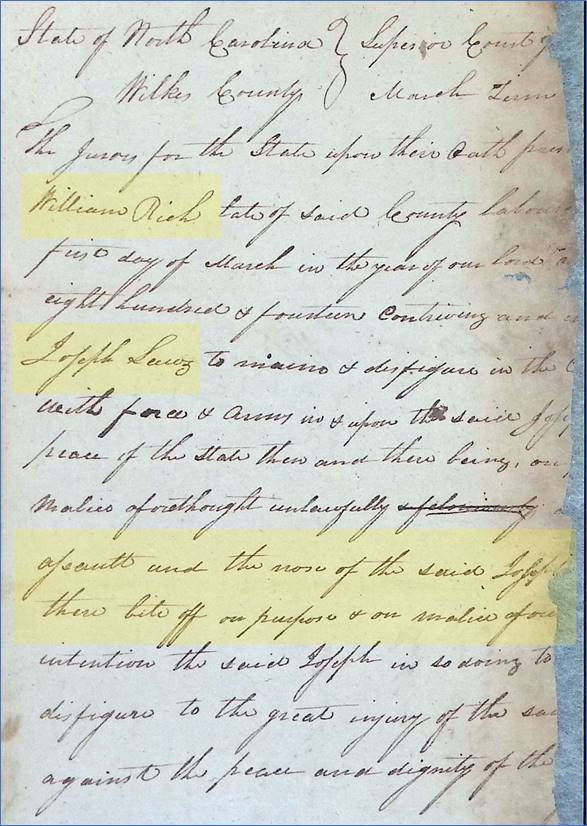 State of North Carolina } Superior Court
Wilkes County } March Term
The Jurors for the State upon their Oath
William Rich late of said County labour
first day of March in the year of our lord
eight hundred & fourteen Contriving and
Joseph Laws to maim & disfigure in the
with force & Arms in & upon the said Jos
peace of the State then and there being, on
Malice aforethought unlawfully & feloniously
assault and the nose of the said Joseph
there bite off on purpose & on malice afore
intention the said Joseph in so doing to
disfigure to the great injury of the sai
against the peace and dignity of the